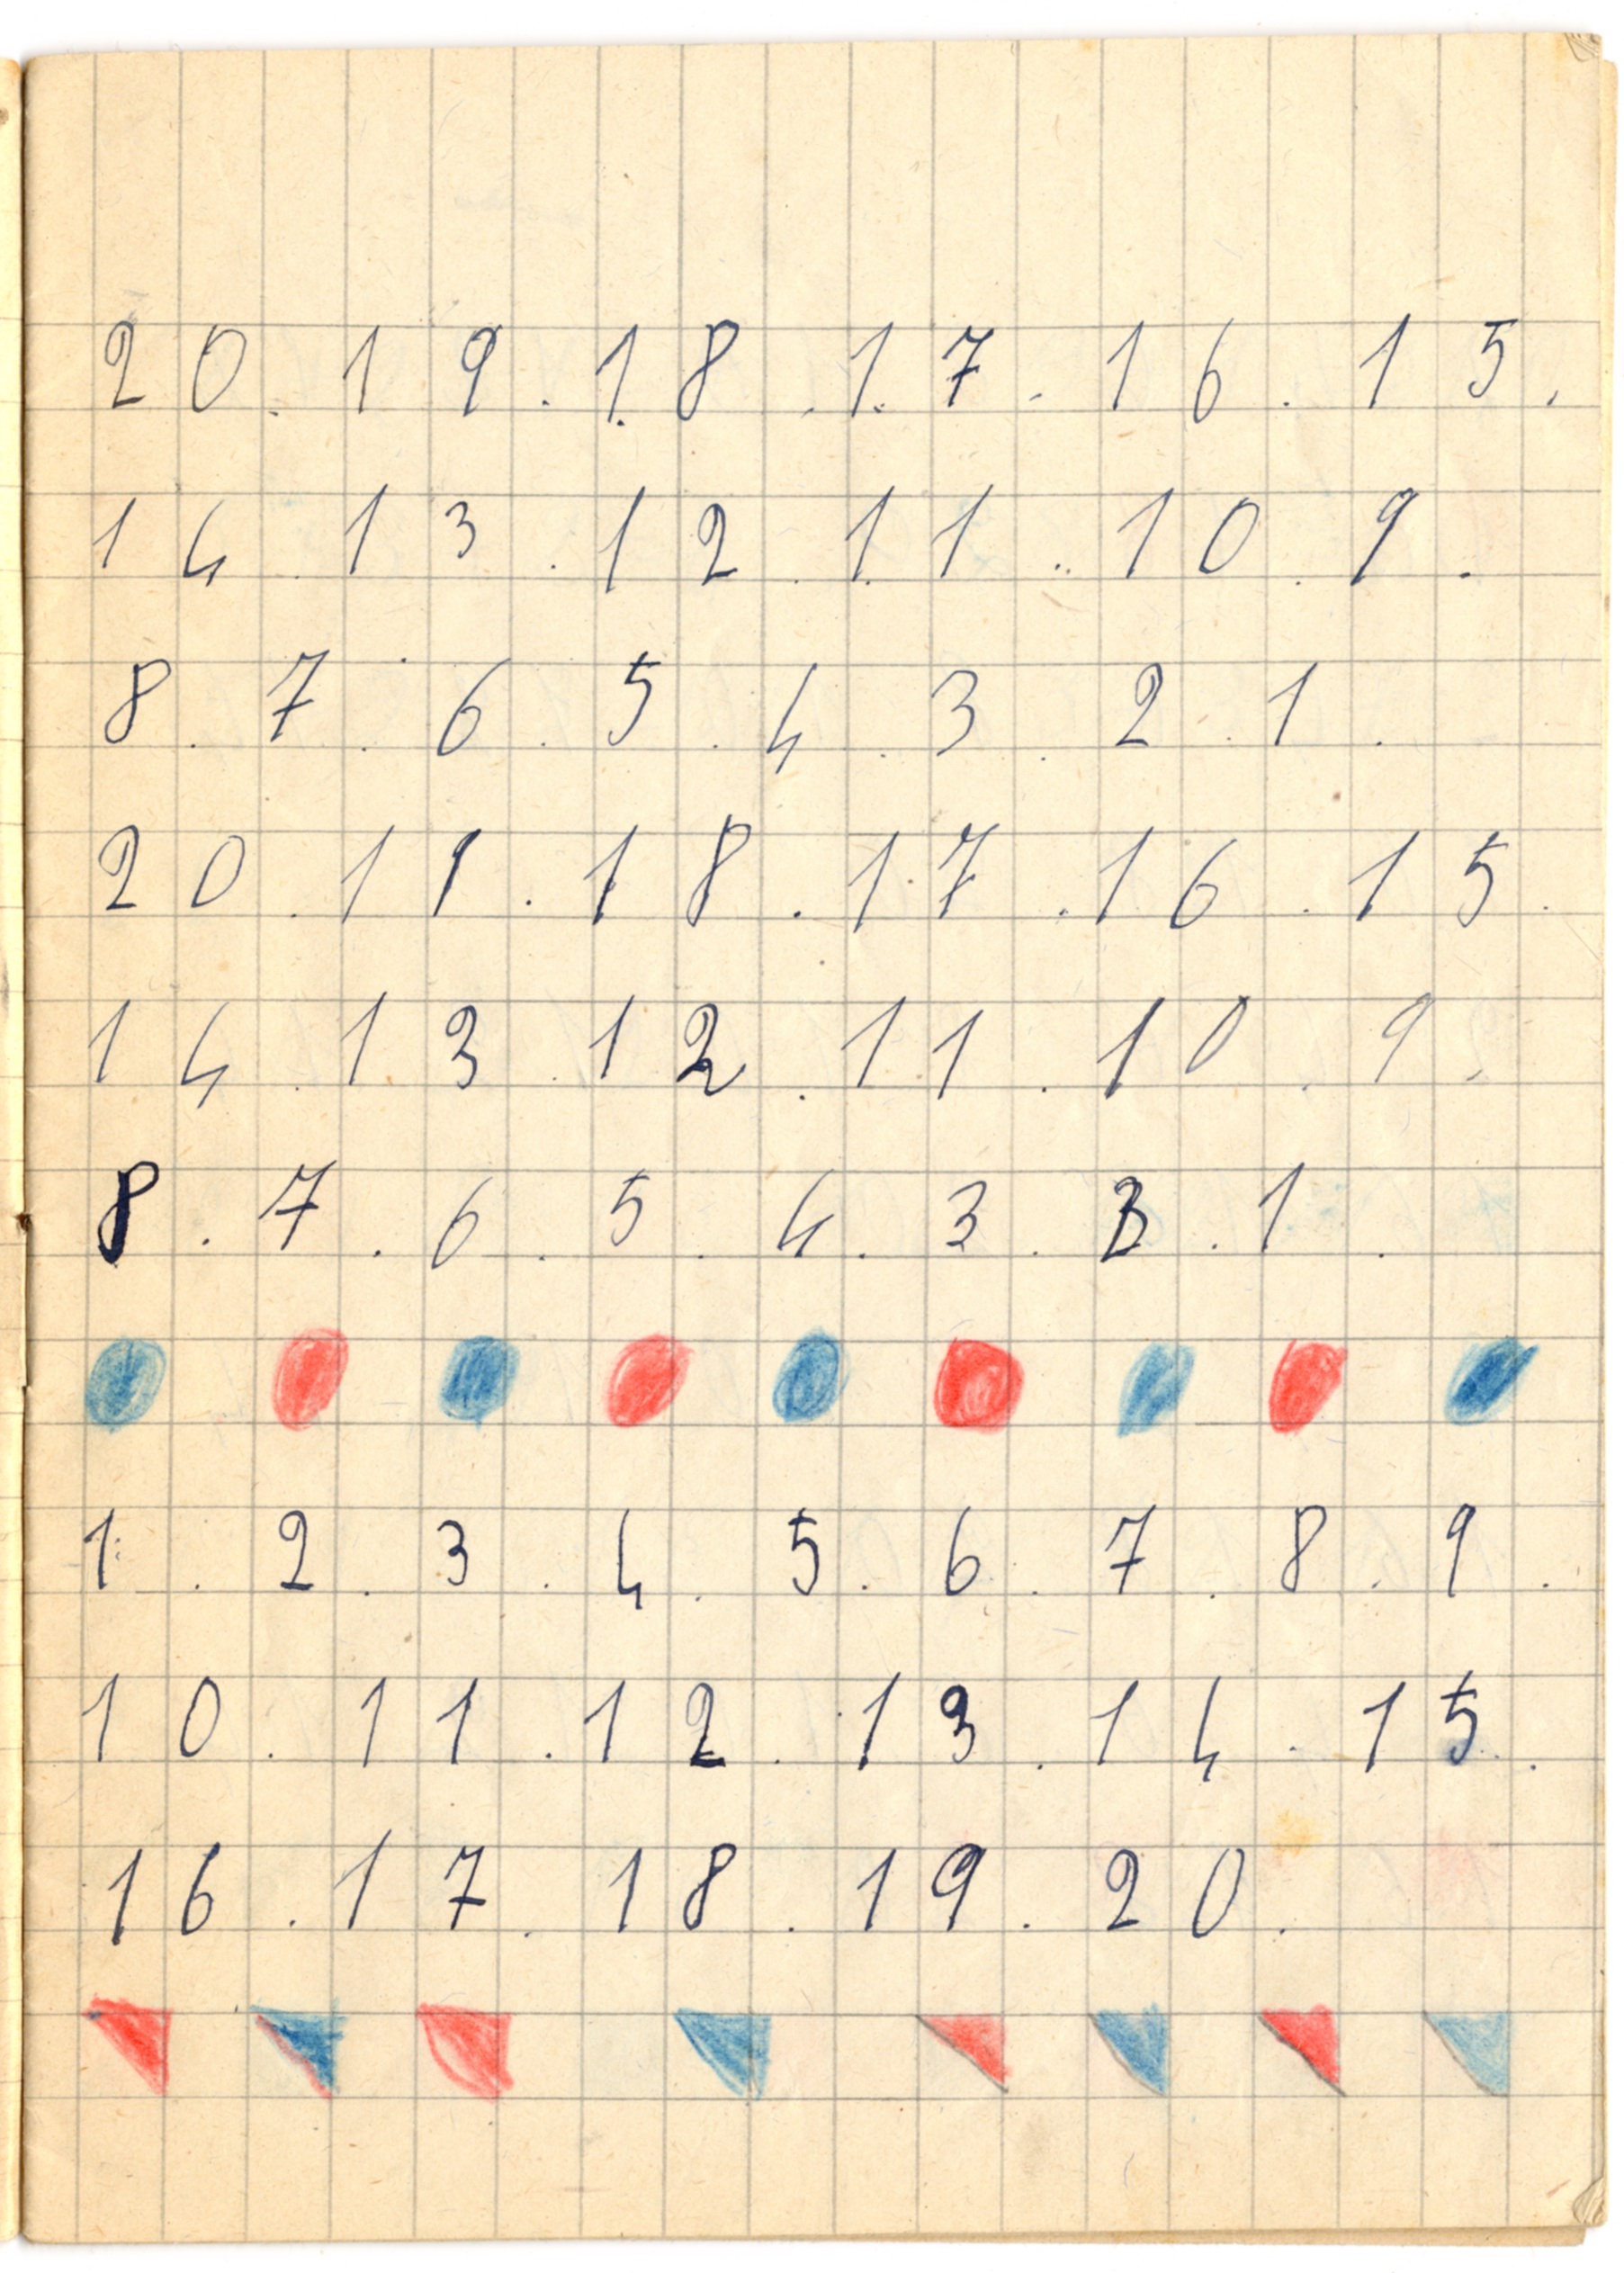 20. 19. 18. 17. 16. 15.
14. 13. 12. 11. 10. 9.
8. 7. 6. 5. 4. 3. 2. 1.
20. 19. 18. 17. 16. 15.
14. 13. 12. 11. 10. 9.
8. 7. 6. 5. 4. 3. 2. 1.
1. 2. 3. 4. 5. 6. 7. 8. 9.
10. 11. 12. 13. 14. 15.
16. 17. 18. 19. 20.